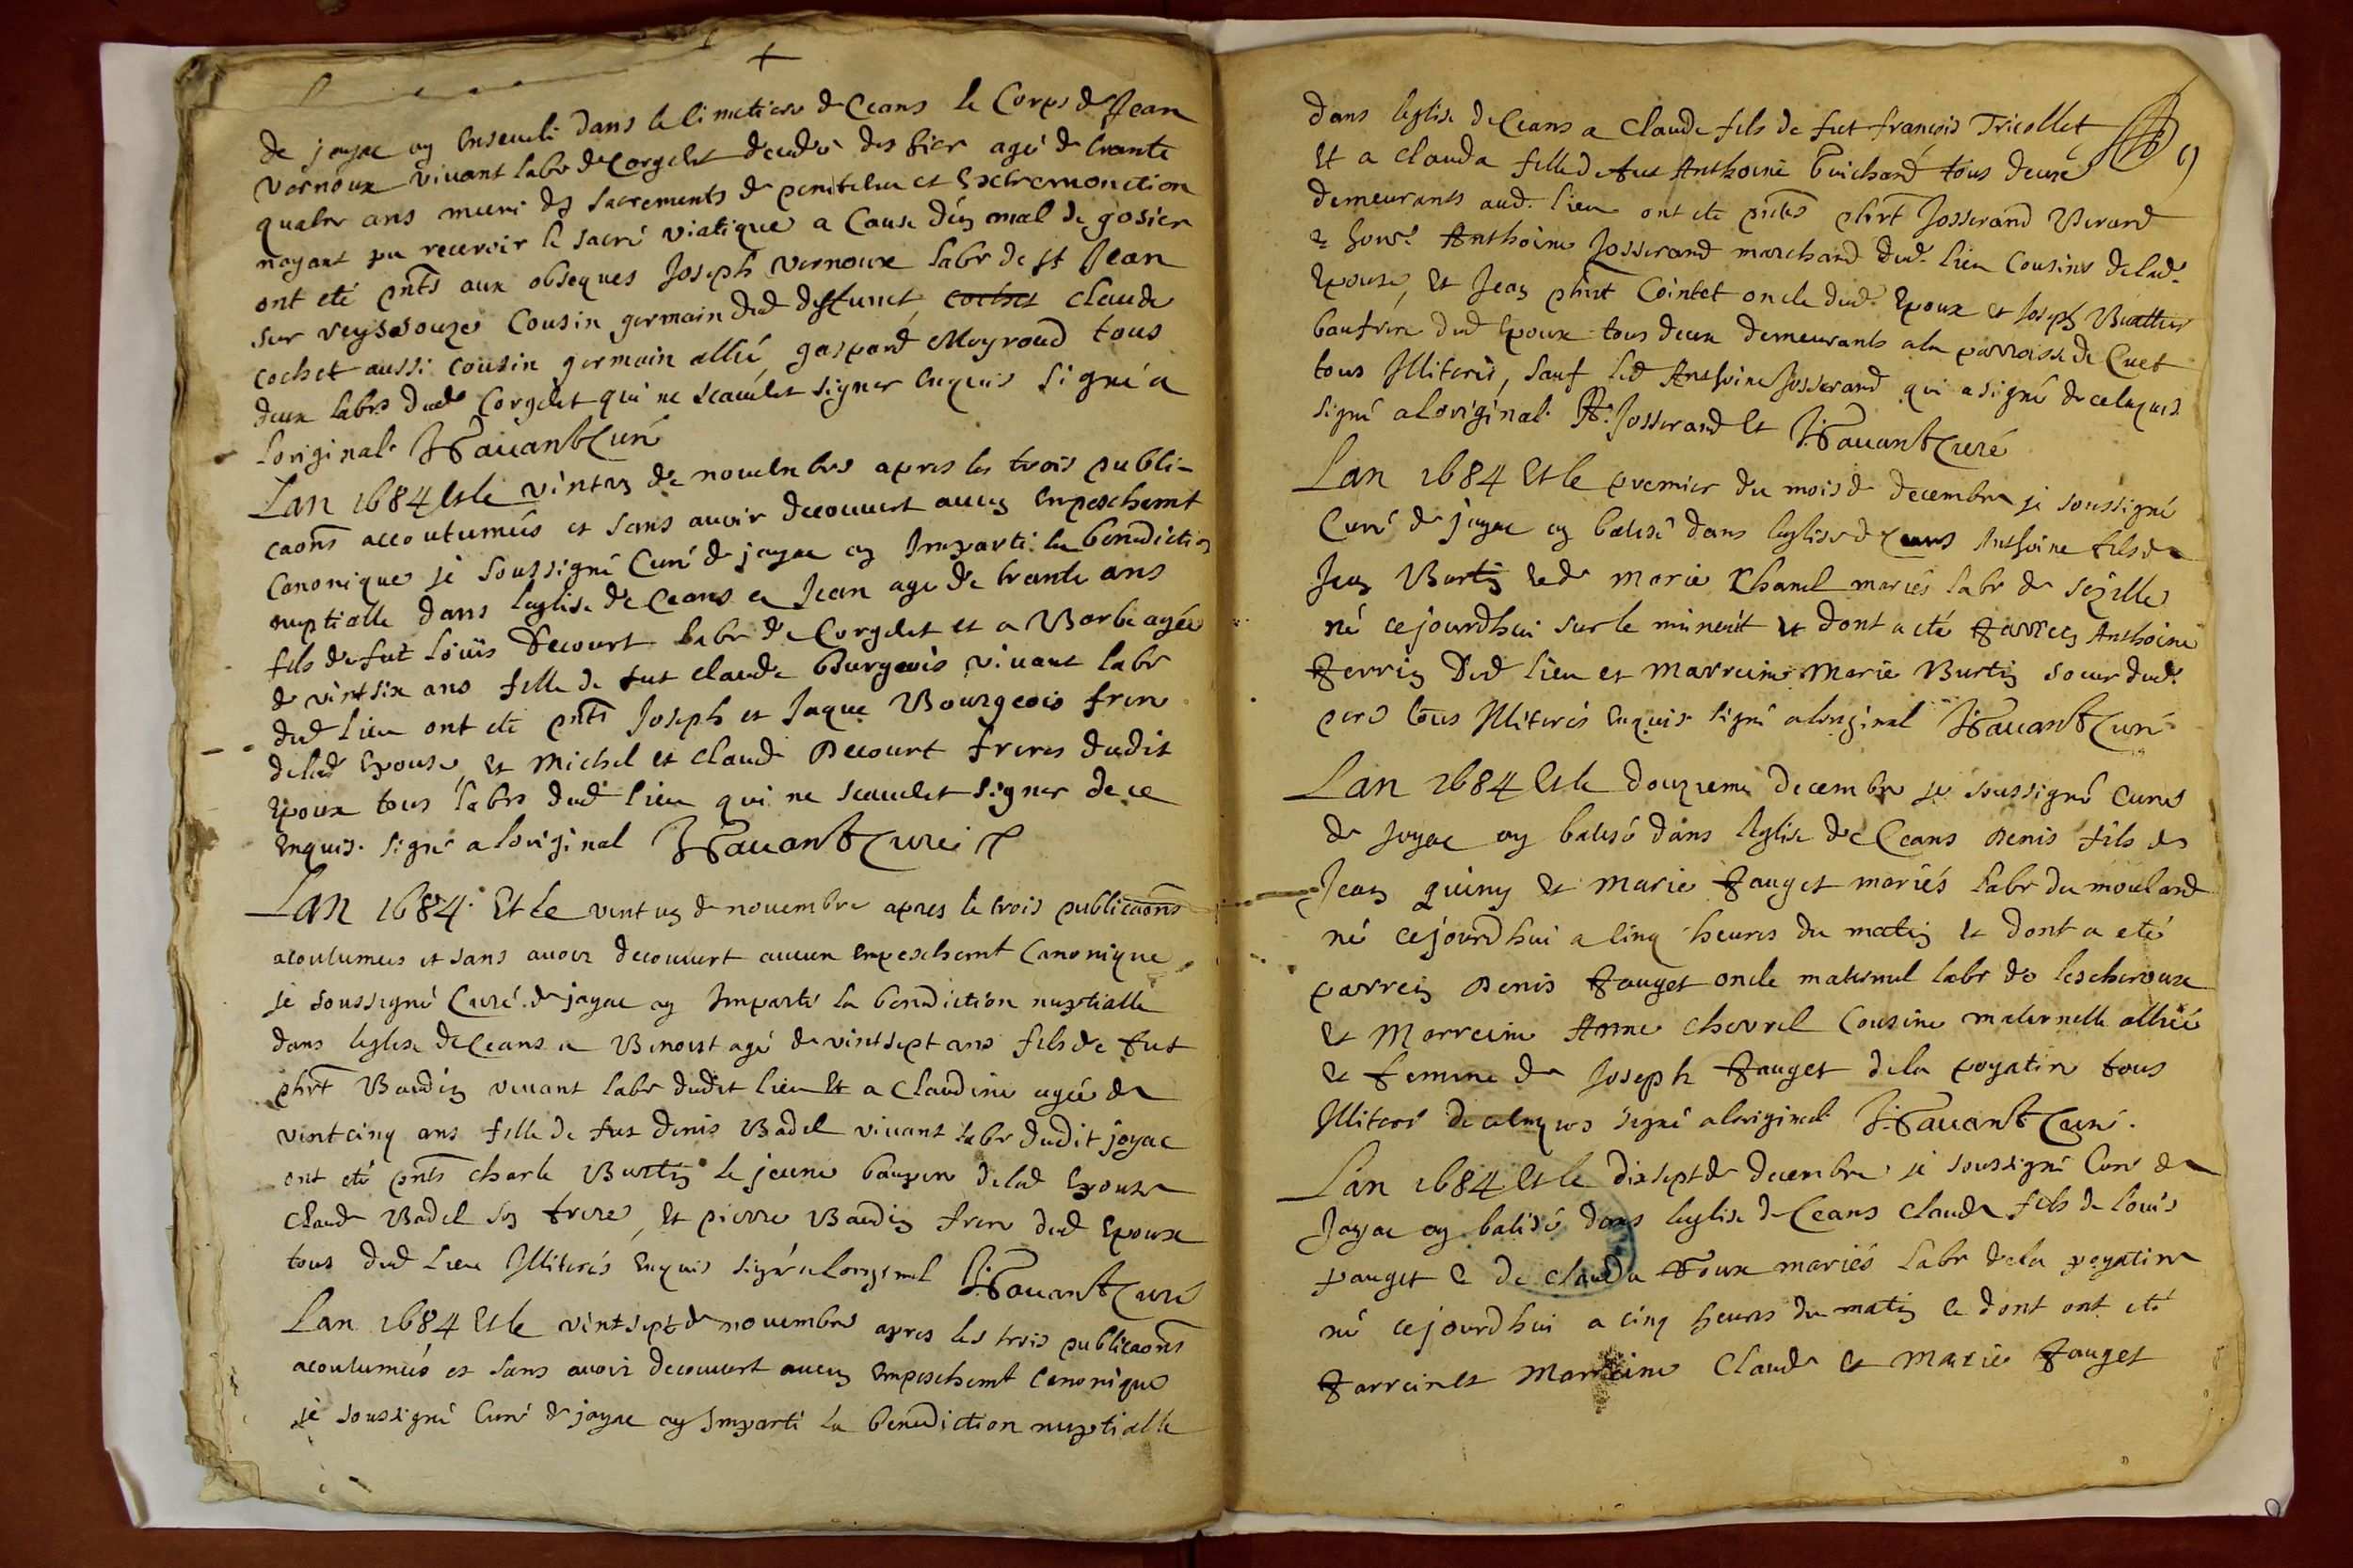 de jayac ay Enseveli dans le Cimetiere de Ceans le Corps de Jean
Vernoux vivant labr de Corgelet decedé des hier agé de trante
quatre ans muni des sacrements de penitence et Extremonction
nayant pu recevoir le sacré viatique a Cause dun mal de gosier
ont eté pnts aux obseques Joseph vernoux labr de st Jean
sur veyssouze Cousin germain dud deffunct Claude
cochet aussi cousin germain allié, gaspard Moyroud tous
deux labrs dud Corgelet qui ne scauelet signer Enquis signé a
loriginal. Havant Curé
Lan 1684 Et le vint un de novembre apres les trois publi-
caons accoutumées et sans avoir decouvert aucun Enpeschemt
Canonique je soussigné Curé de jayac ay Imparti la benediction
nuptialle dans leglise de Ceans a Jean agé de trante ans
fils de fut Loüis Decourt labr de Corgelet et a Barbe agée
de vintsix ans fille de fut Claude Burgeois vivant labr
dud lieu ont eté pnts Joseph et Jaque Bourgeois frere
de lad Epouse, Et Michel et Claude Decourt freres dudit
Epoux tous labrs dud lieu qui ne scauelet signer de ce
enquis. signé a loriginal Havant Curé
Lan 1684. Et Le vint un de novembre apres le trois publicaons
acoutumees et sans avoir decouvert aucun Enpeschemt Canonique
je soussigné Curé de jayac ay Imparti la benediction nuptialle
dans leglise de Ceans a Benoist agé de vintsept ans fils de fut
phrt Baudin vivant labr dudit lieu Et a Claudine agée de
vintcinq ans fille de fut denis Badel vivant labr dudit jayac
ont eté pnts charle Burtin le jeune de lad Epouse
Claude Badel son frere, Et pierre Baudin frere dud Epoux
tous dud Lieu Illiterés Enquis signé a loriginal Havant Curé
Lan 1684 Et le vintsept de novembre apres les trois publicaons
acoutumées et sans avoir decouvert aucun Enpeschemt Canonique
je soussigné Curé de jayac ay Imparti la benediction nuptialle
dans leglise de Ceans a Claude fils de fut françois Tricollet
Et a Clauda fille de fut Anthoine Guichard tous deux
demeurants aud. lieu ont eté pntes phrt Josserand
& hon. Anthoine Josserand marchand dud. lieu Cousins de lad.
Epouse, Et Jean phrt Cointet oncle dud. Epoux et Joseph
baufrere dud Epoux tous deux demeurants a la parroisse de Cuet
tous Illiterés, sauf led Anthoine Josserand qui a signé de ce Enquis
signé a loriginal. A. Josserand Et Havant Curé
Lan 1684 Et le premier du mois de decembre je soussigné
Curé de jayac ay batisé dans leglise de Ceans Anthoine fils de
Jean Burtin et de Marie Chanel mariés labr de
né cejourdhui sur le minuit et dont a eté parrein Anthoine
Perrin Dud lieu et Marreine Marie Burtin soeur dud.
pere tous Illiterés Enquis signé a loriginal Havant Curé
Lan 1684 Et le douzieme decembre je soussigné Curé
de Jayac ay batisé dans leglise de Ceans Denis fils de
Jean guiny et Marie Pauget mariés labr du moulard
né cejourdhui a cinq heures du matin et dont a eté
parrein Denis Pauget oncle maternel labr de lescheroux
et Marreine Anne chevrel Cousine maternelle alliée
et femme de Joseph Pauget de la poyatire tous
Illiteré de ce enquis signé a loriginal Havant Curé.
Lan 1684 Et le dixsept de decembre je soussigné Curé de
Jayac ay batisé dans leglise de Ceans Claude fils de Louis
Pauget & de Clauda Poux mariés labr de la poyatire
né cejourdhui a cinq heures du matin & dont ont eté
Parrein et Marreine Claude et Marie Pauget